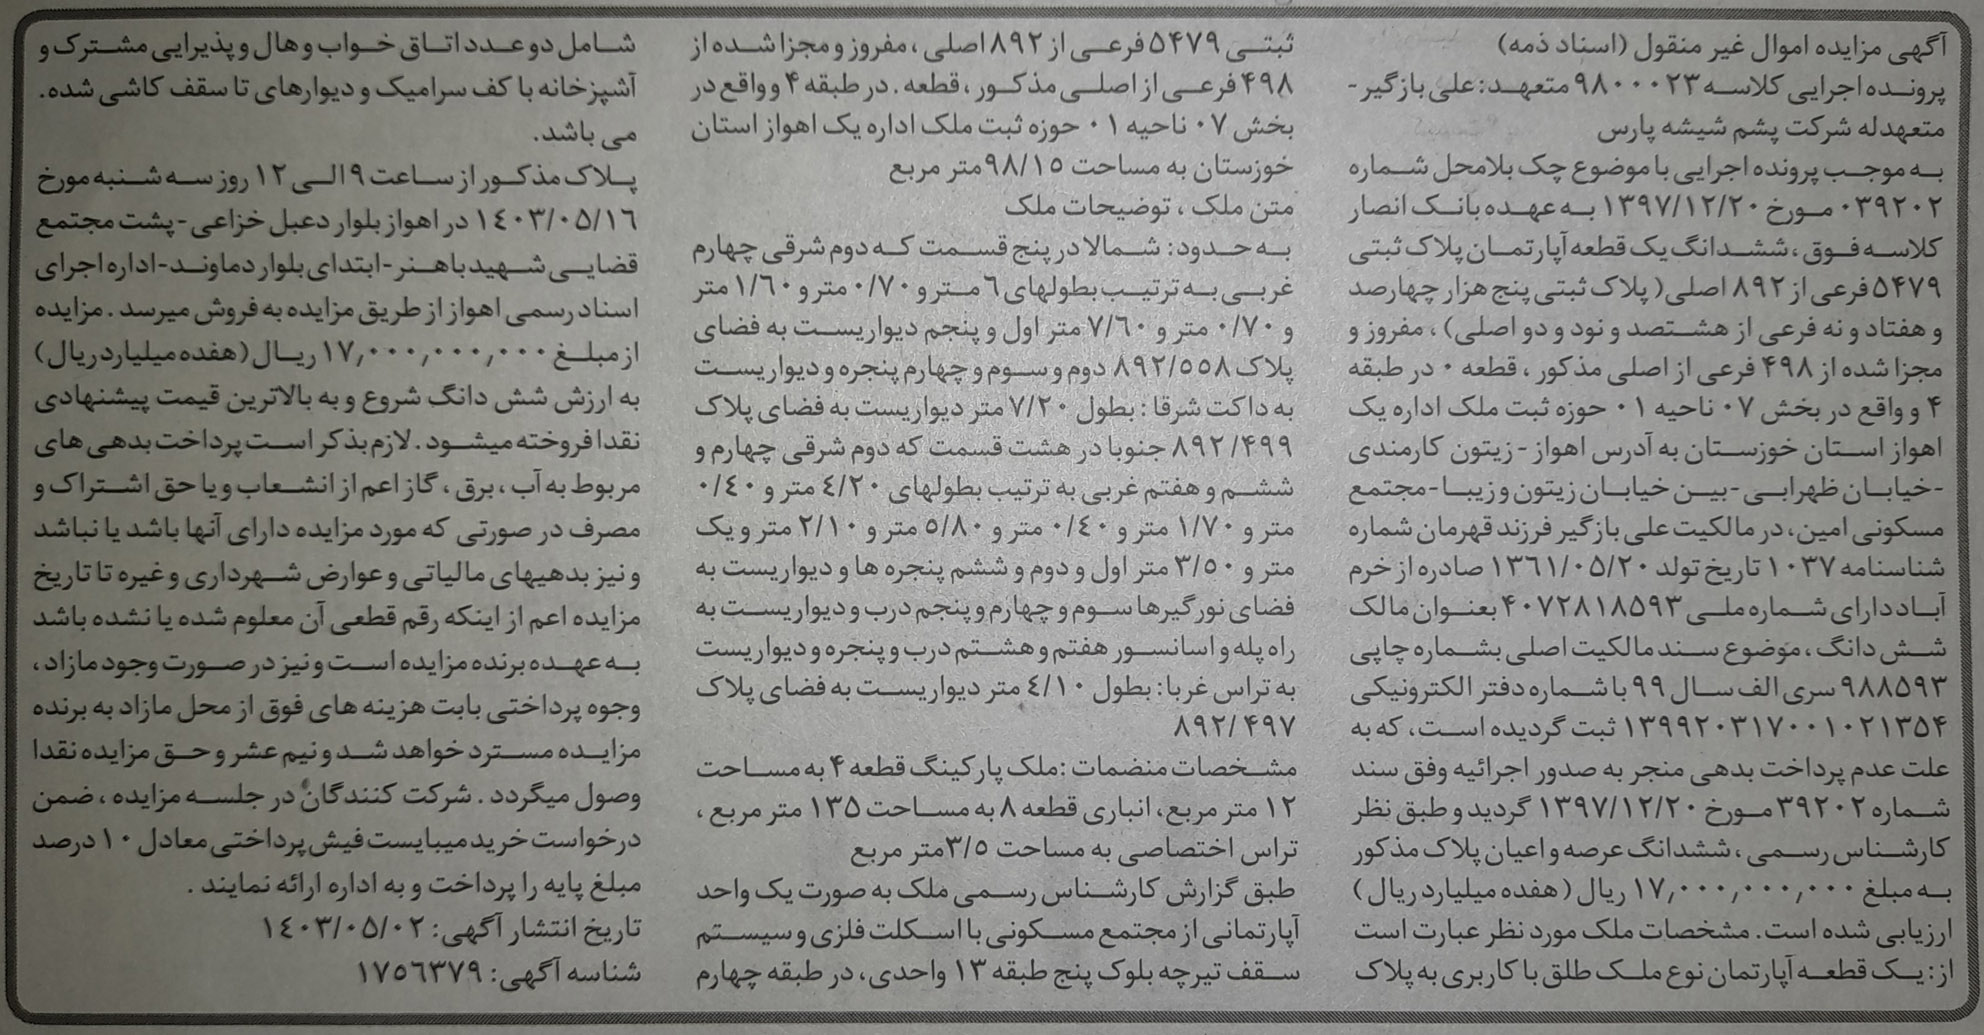 آگهی مزایده اموال غیر منقول (اسناد ذمه)
پرونده اجرایی کلاسه ۹۸۰۰۰۲۳ متعهد: علی بازگیر -
متعهدله شرکت پشم شیشه پارس
به موجب پرونده اجرایی با موضوع چک بلامحل شماره
۰۳۹۲۰۲ مورخ ۱۳۹۷/۱۲/۲۰ به عهده بانک انصار
کلاسه فوق ، ششدانگ یک قطعه آپارتمان پلاک ثبتی
۵۴۷۹ فرعی از ۸۹۲ اصلی( پلاک ثبتی پنج هزار چهارصد
و هفتاد و نه فرعی از هشتصد و نود و دو اصلی) ، مفروز و
مجزا شده از ۴۹۸ فرعی از اصلی مذکور ، قطعه ۰ در طبقه
۴ و واقع در بخش ۰۷ ناحیه ۰۱ حوزه ثبت ملک اداره یک
اهواز استان خوزستان به آدرس اهواز - زیتون کارمندی
-خیابان ظهرابی -بین خیابان زیتون و زیبا -مجتمع
مسکونی امین، در مالکیت علی بازگیر فرزند قهرمان شماره
شناسنامه ۱۰۳۷ تاریخ تولد ۱۳۶۱/۰۵/۲۰ صادره از خرم
آباد دارای شماره ملی ۴۰۷۲۸۱۸۵۹۳ بعنوان مالک
شش دانگ ، موضوع سند مالکیت اصلی بشماره چاپی
۹۸۸۵۹۳ سری الف سال ۹۹ با شماره دفتر الکترونیکی
۱۳۹۹۲۰۳۱۷۰۰۱۰۲۱۳۵۴ ثبت گردیده است، که به
علت عدم پرداخت بدهی منجر به صدور اجرائیه وفق سند
شماره ۳۹۲۰۲ مورخ ۱۳۹۷/۱۲/۲۰ گردید و طبق نظر
کارشناس رسمی ، ششدانگ عرصه و اعیان پلاک مذکور
به مبلغ ۱۷٫۰۰۰٫۰۰۰٫۰۰۰ ریال (هفده میلیارد ریال)
ارزیابی شده است. مشخصات ملک مورد نظر عبارت است
از: یک قطعه آپارتمان نوع ملک طلق با کاربری به پلاک
ثبتی ۵۴۷۹ فرعی از ۸۹۲ اصلی ، مفروز و مجزا شده از
۴۹۸ فرعی از اصلی مذکور ، قطعه . در طبقه ۴ و واقع در
بخش ۰۷ ناحیه ۰۱ حوزه ثبت ملک اداره یک اهواز استان
خوزستان به مساحت ۹۸/۱۵ متر مربع
متن ملک ، توضیحات ملک
به حدود: شمالا در پنج قسمت که دوم شرقی چهارم
غربی به ترتیب بطولهای ۶ متر و ۰/۷۰ متر و ۱/۶۰ متر
و ۰/۷۰ متر و ۷/۶۰ متر اول و پنجم دیواریست به فضای
پلاک ۸۹۲/۵۵۸ دوم و سوم و چهارم پنجره و دیواریست
به داکت شرقا : بطول ۷/۲۰ متر دیواریست به فضای پلاک
۸۹۲/۴۹۹ جنوبا در هشت قسمت که دوم شرقی چهارم و
ششم و هفتم غربی به ترتیب بطولهای ۴/۲۰ متر و ۰/۴۰
متر و ۱/۷۰ متر و ۰/۴۰ متر و ۵/۸۰ متر و ۲/۱۰ متر و یک
متر و ۳/۵۰ متر اول و دوم و ششم پنجره ها و دیواریست به
فضای نورگیرها سوم و چهارم و پنجم درب و دیواریست به
راه پله و اسانسور هفتم و هشتم درب و پنجره و دیواریست
به تراس غربا: بطول ۴/۱۰ متر دیواریست به فضای پلاک
۸۹۲/۴۹۷
مشخصات منضمات :ملک پارکینگ قطعه ۴ به مساحت
۱۲ متر مربع، انباری قطعه ۸ به مساحت ۱۳۵ متر مربع ،
تراس اختصاصی به مساحت ۳/۵ متر مربع
طبق گزارش کارشناس رسمی ملک به صورت یک واحد
آپارتمانی از مجتمع مسکونی با اسکلت فلزی و سیستم
سقف تیرچه بلوک پنج طبقه ۱۳ واحدی، در طبقه چهارم
شامل دو عدد اتاق خواب و هال و پذیرایی مشترک و
آشپزخانه با کف سرامیک و دیوارهای تا سقف کاشی شده.
می باشد.
پلاک مذکور از ساعت ۹ الی ۱۲ روز سه شنبه مورخ
۱۴۰۳/۰۵/۱۶ در اهواز بلوار دعبل خزاعی -پشت مجتمع
قضایی شهید باهنر -ابتدای بلوار دماوند-اداره اجرای
اسناد رسمی اهواز از طریق مزایده به فروش میرسد . مزایده
از مبلغ ۱۷٫۰۰۰٫۰۰۰٫۰۰۰ ریال (هفده میلیارد ریال)
به ارزش شش دانگ شروع و به بالاترین قیمت پیشنهادی
نقدا فروخته میشود . لازم بذکر است پرداخت بدهی های
مربوط به آب ، برق ، گاز اعم از انشعاب و یا حق اشتراک و
مصرف در صورتی که مورد مزایده دارای آنها باشد یا نباشد
و نیز بدهیهای مالیاتی و عوارض شهرداری و غیره تا تاریخ
مزایده اعم از اینکه رقم قطعی آن معلوم شده یا نشده باشد
به عهده برنده مزایده است و نیز در صورت وجود مازاد ،
وجوه پرداختی بابت هزینه های فوق از محل مازاد به برنده
مزایده مسترد خواهد شد و نیم عشر و حق مزایده نقدا
وصول میگردد . شرکت کنندگان در جلسه مزایده ، ضمن
درخواست خرید میبایست فیش پرداختی معادل ۱۰ درصد
مبلغ پایه را پرداخت و به اداره ارائه نمایند .
تاریخ انتشار آگهی: ۱۴۰۳/۰۵/۰۲
شناسه آگهی: ۱۷۵۶۳۷۹